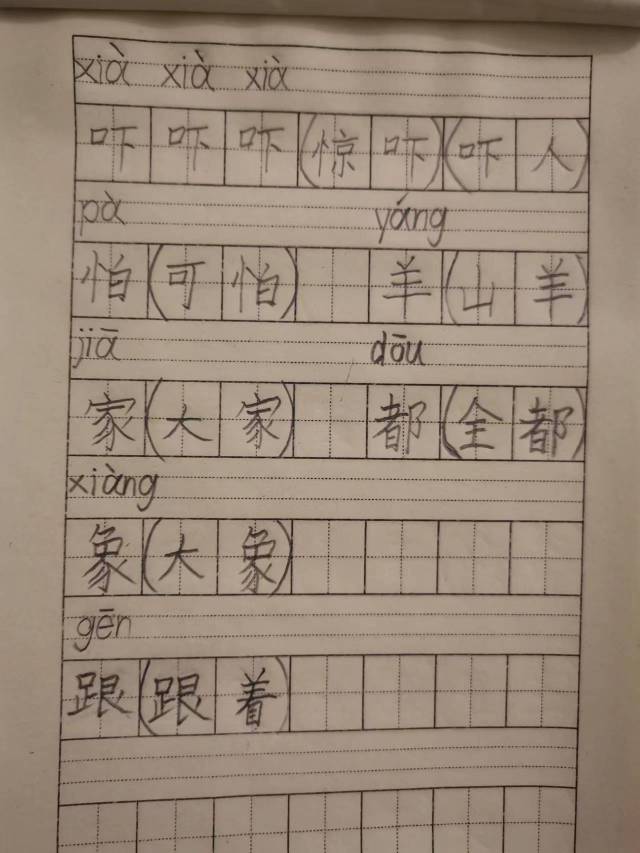 xià xià xià
吓 吓 吓 (惊 吓) (吓 人)
pà yáng
怕 (可 怕) 羊 (山 羊)
jiā dōu
家 (大 家) 都 (全 都)
xiàng
象 (大 象)
gēn
跟 (跟 着)